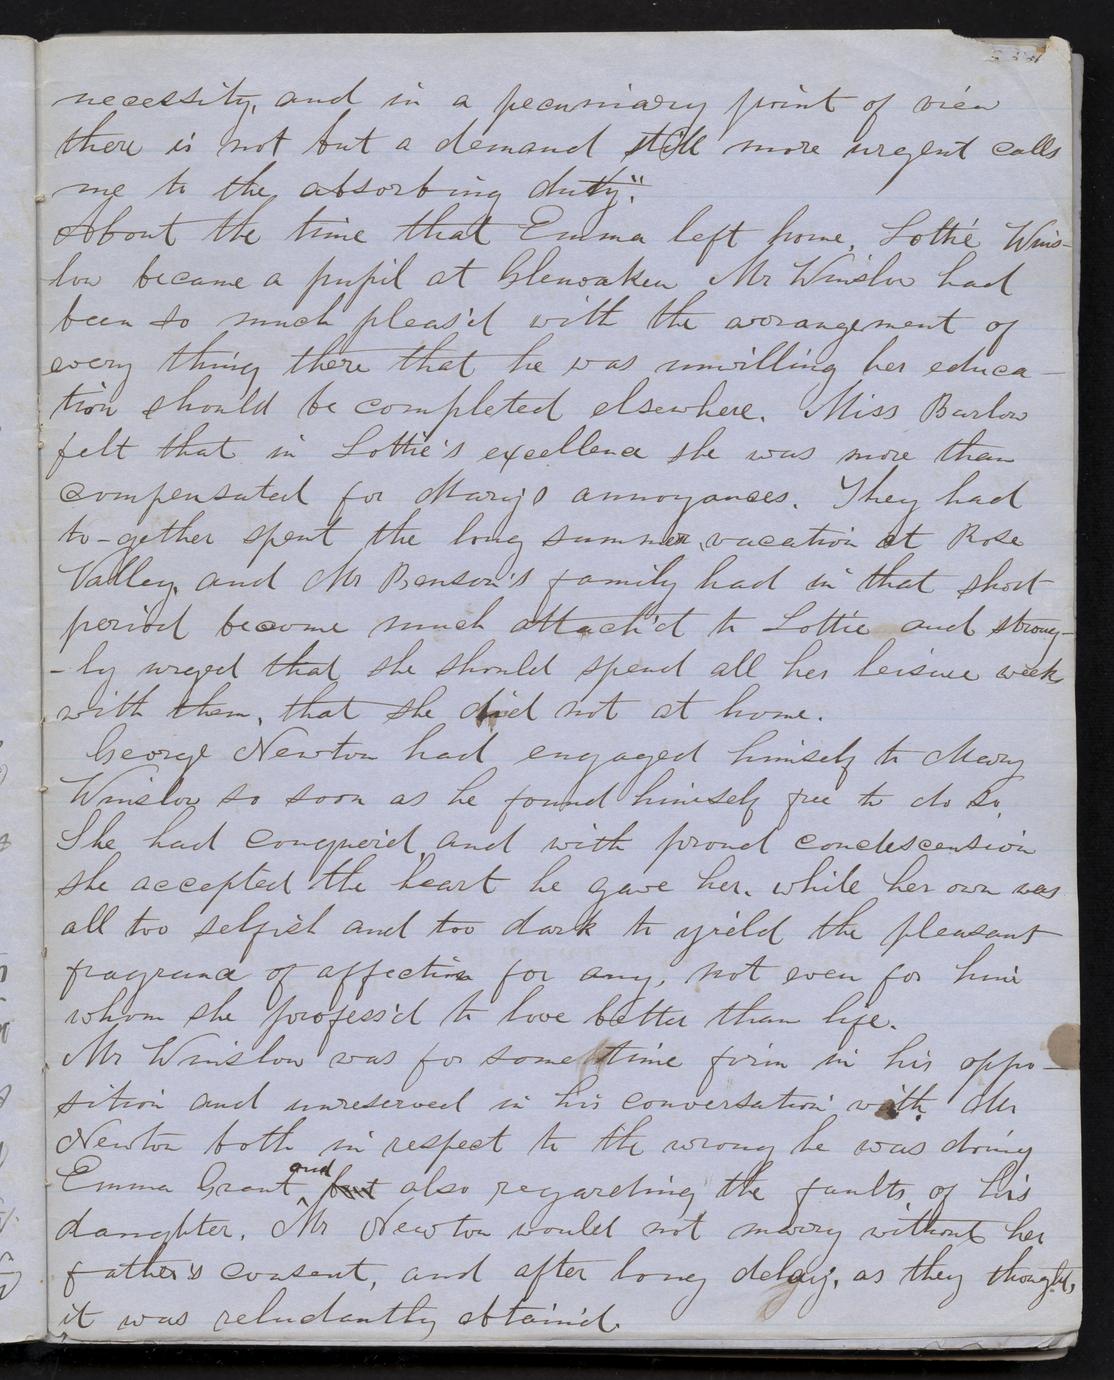 necessity, and in a pecuniary point of view
there is not but a demand still more urgent calls
me to the absorbing duty."
About the time that Emma left home, Lottie Wins-
low became a pupil at Glenoaken Mr Winslow had
been so much pleas'd with the arrangement of
every thing there that he was unwilling her educa-
tion should be completed elsewhere. Miss Barlow
felt that in Lottie's excellence she was more than
compensated for Mary's annoyances. They had
to-gether spent the long summer vacation at Rose
Valley, and Mr Benson's family had in that short
period become much attach'd to Lottie and strong-
-ly urged that she should spend all her leisure weeks
with them, that she did not at home.
George Newton had engaged himself to Mary
Winslow so soon as he found himself free to do so.
She had conquer'd, and with proud condescension
she accepted the heart he gave her, while her own was
all too selfish and too dark to yield the pleasant
fragrance of affection for any, not even for him
whom she profess'd to love better than life.
Mr Winslow was for some time firm in his oppo-
sition and unreserved in his conversation with Mr
Newton both in respect to the wrong he was doing
Emma Grant and but also regarding the faults of his
daughter. Mr Newton would not marry without her
father's consent, and after long delay, as they thought,
it was reluctantly obtain'd.